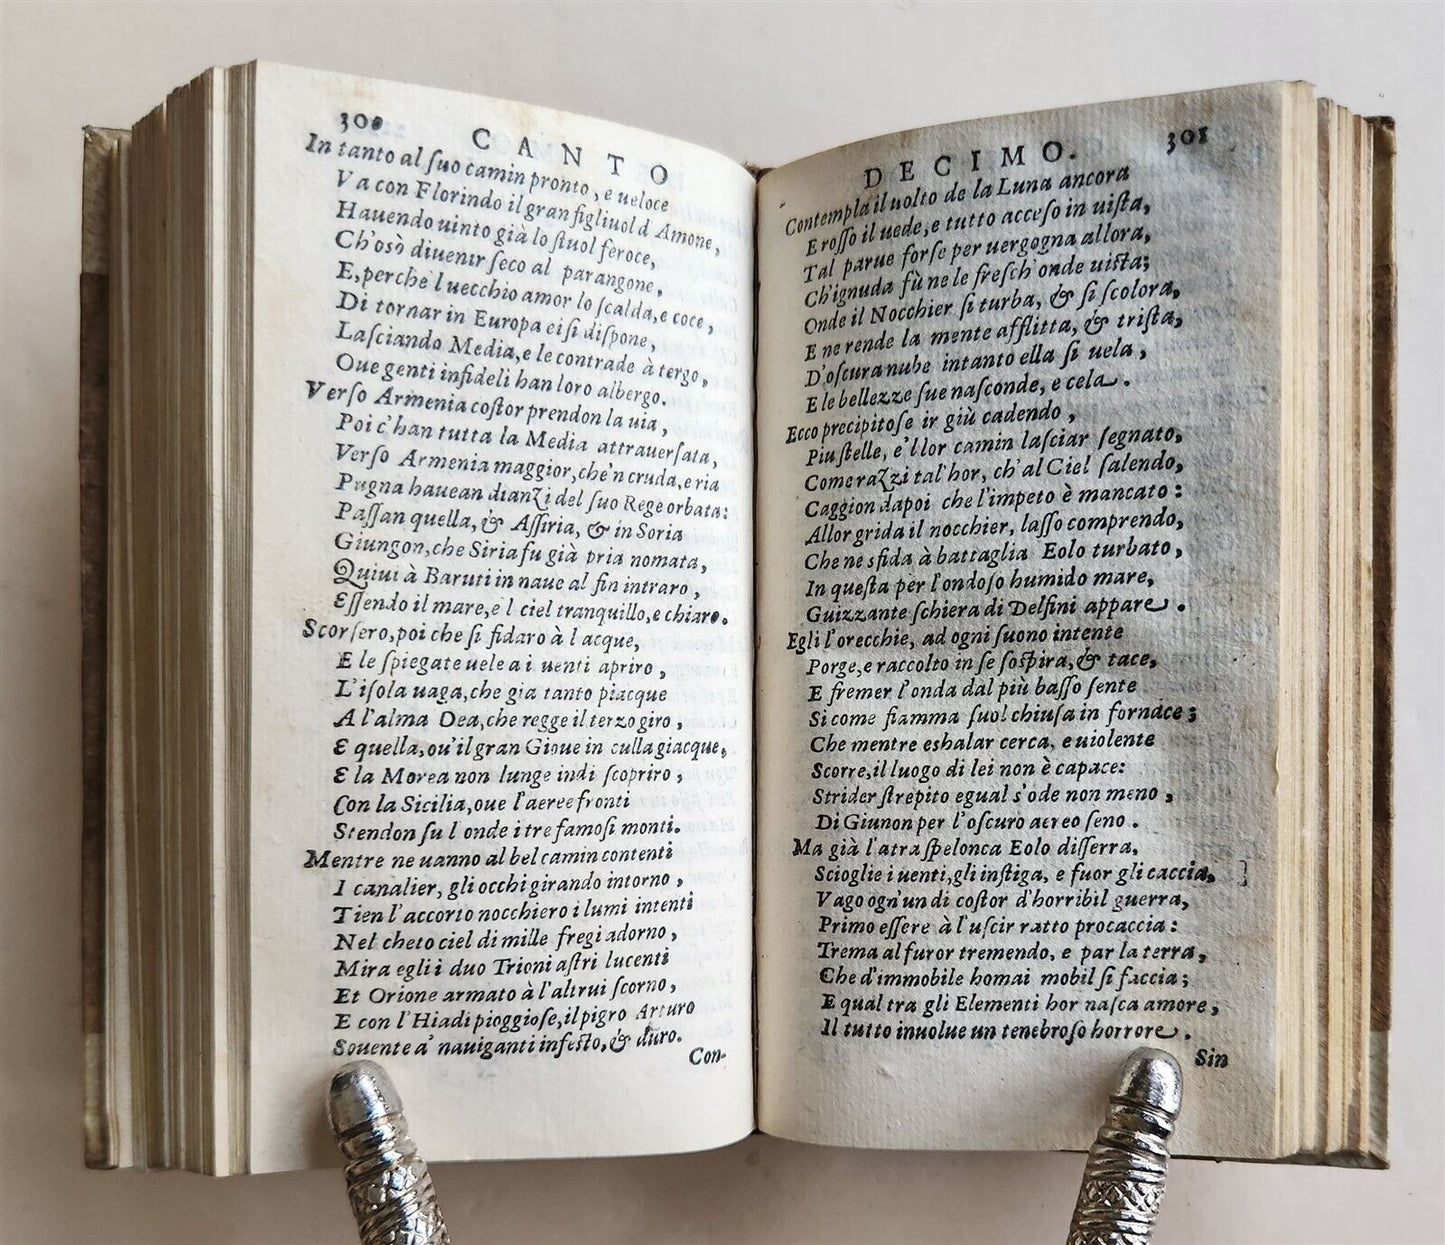 300 CANTO
In tanto al ſuo camin pronto, e ueloce
Va con Florindo il gran figliuol d Amone,
Hauendo uinto già lo ſtuol feroce,
Ch'osò diuenir ſeco al parangone,
E, perche l uecchio amor lo ſcalda, e coce,
Di tornar in Europa ei ſi diſpone,
Laſciando Media, e le contrade à tergo,
Oue genti infideli han loro albergo.
Verſo Armenia coſtor prendon la uia,
Poi c'han tutta la Media attrauerſata,
Verſo Armenia maggior, che'n cruda, e ria
Pugna hauean dianzi del ſuo Rege orbata:
Paſſan quella, & Aſſiria, & in Soria
Giungon, che Siria fu già pria nomata,
Quiui à Baruti in naue al fin intraro,
Eſſendo il mare, e l ciel tranquillo, e chiaro.
Scorſero, poi che ſi fidaro à l acque,
E le ſpiegate uele a i uenti apriro,
L'iſola uaga, che gia tanto piacque
A l'alma Dea, che regge il terzo giro,
E quella, ou'il gran Gioue in culla giacque,
E la Morea non lunge indi ſcopriro,
Con la Sicilia, oue l'aeree fronti
Stendon ſu l onde i tre famoſi monti.
Mentre ne uanno al bel camin contenti
I caualier, gli occhi girando intorno,
Tien l'accorto nocchiero i lumi intenti
Nel cheto ciel di mille fregi adorno,
Mira egli i duo Trioni aſtri lucenti
Et Orione armato à l'altrui ſcorno,
E con l'Hiadi pioggioſe, il pigro Arturo
Souente a' nauiganti infeſto, & duro.
Con-
DECIMO. 301
Contempla il uolto de la Luna ancora
E roſſo il uede, e tutto acceſo in uiſta,
Tal parue forſe per uergogna allora,
Ch'ignuda fù ne le freſch'onde uiſta;
Onde il Nocchier ſi turba, & ſi ſcolora,
E ne rende la mente afflitta, & triſta,
D'oſcura nube intanto ella ſi uela,
E le bellezze ſue naſconde, e cela.
Ecco precipitoſe ir giù cadendo,
Piu ſtelle, e'l lor camin laſciar ſegnato,
Come razzi tal'hor, ch'al Ciel ſalendo,
Caggion dapoi che l'impeto è mancato:
Allor grida il nocchier, laſſo comprendo,
Che ne sfida à battaglia Eolo turbato,
In queſta per l'ondoſo humido mare,
Guizzante ſchiera di Delfini appare.
Egli l'orecchie, ad ogni ſuono intente
Porge, e raccolto in ſe ſoſpira, & tace,
E fremer l'onda dal più baſſo ſente
Si come fiamma ſuol chiuſa in fornace;
Che mentre eshalar cerca, e uiolente
Scorre, il luogo di lei non è capace:
Strider ſtrepito egual s'ode non meno,
Di Giunon per l'oſcuro aereo ſeno.
Ma già l'atra ſpelonca Eolo diſſerra,
Scioglie i uenti, gli inſtiga, e fuor gli caccia,
Vago ogn'un di coſtor d'horribil guerra,
Primo eſſere à l'uſcir ratto procaccia:
Trema al furor tremendo, e par la terra,
Che d'immobile homai mobil ſi faccia;
E qual tra gli Elementi hor naſca amore,
Il tutto inuolue un tenebroſo horrore.
Sin